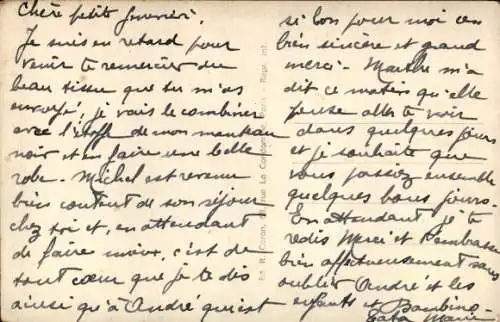 Chère petite
Je suis en retard pour
venir te remercier du
beau tissu que tu m'as
envoyé, je vais le combiner
avec l'étoffe de mon manteau
noir et en faire une belle
robe. Michel est revenu
bien content de son séjour
chez toi et, en attendant
de faire mieux, c'est de
tout cœur que je te dis
ainsi qu'à André qui est
si bon pour moi un
bien sincère et grand
merci. Marthe m'a
dit ce matin qu'elle
pense aller te voir
dans quelques jours
et je souhaite que
vous passiez ensemble
quelques bons jours.
En attendant je te
redis Merci et t'embrasse
bien affectueusement sans
oublier André et les
enfants et Bambino.
Marie
R. Coron, rue La Cont